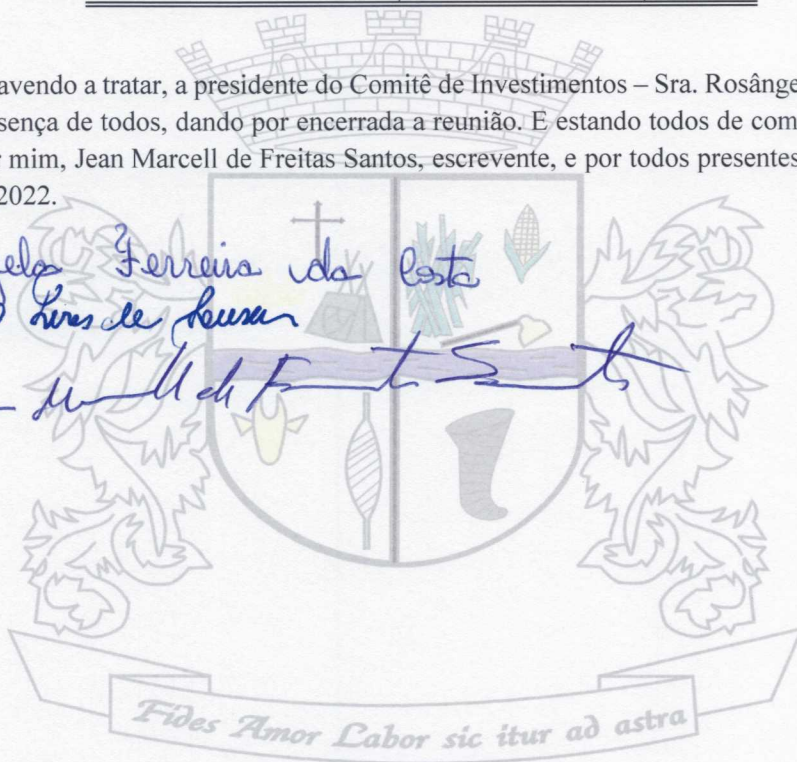 avendo a tratar, a presidente do Comitê de Investimentos – Sra. Rosânge
sença de todos, dando por encerrada a reunião. E estando todos de com
r mim, Jean Marcell de Freitas Santos, escrevente, e por todos presentes
2022.
gela Ferreira da Costa
de
Fides Amor Labor sic itur ad astra